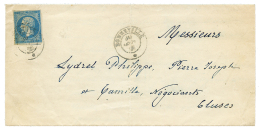 BONNEVILLE
Messieurs
Lydrel Philippe, Pierre Joseph
et Camille Négociants
Cluses